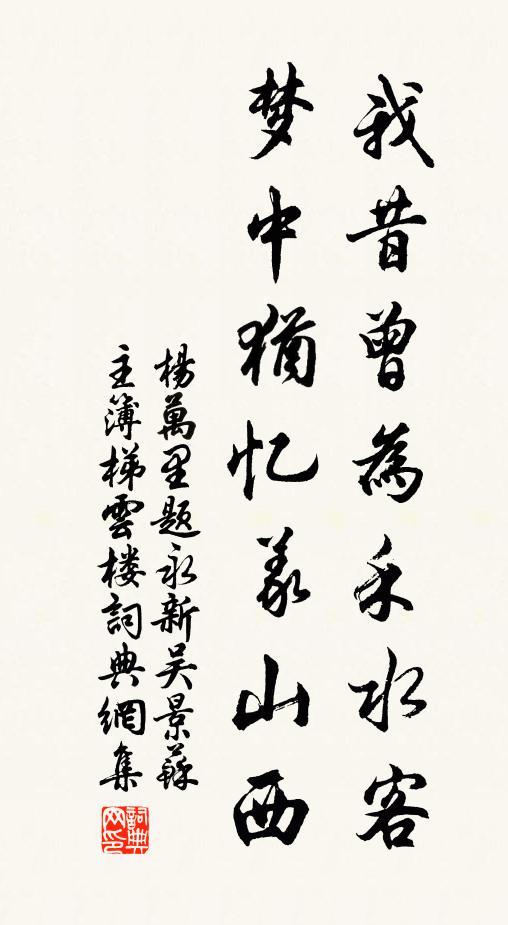 我昔曾為禾水客
梦中猶忆義山西
楊萬里题永新吴景蘇
主簿梯雲楼詞典網集
詞典
网印